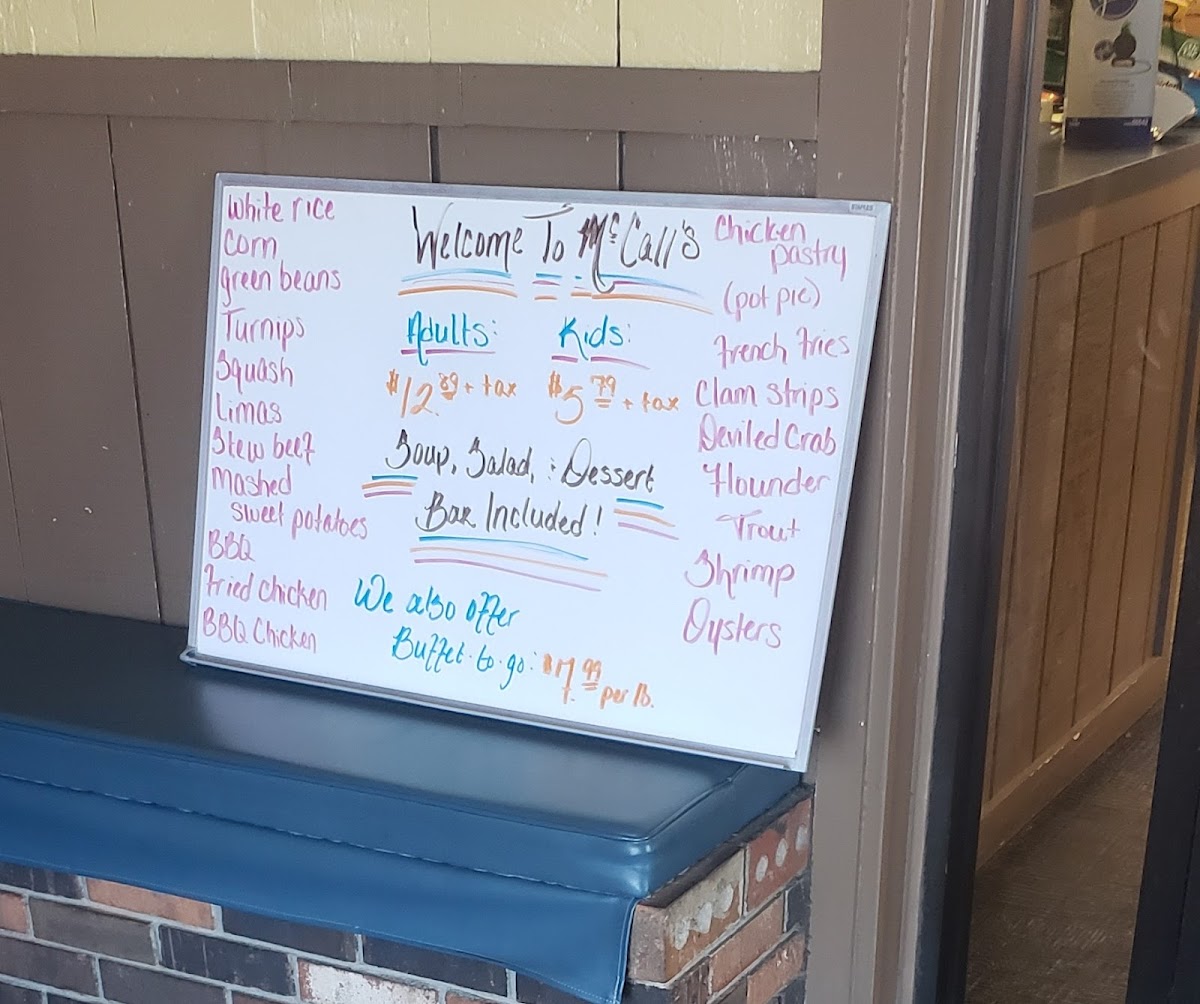 White rice
Corn
green beans
Turnips
Squash
Limas
Stew beef
Mashed
sweet potatoes
BBQ
Fried Chicken
BBQ Chicken
Welcome To McCall's
Adults: Kids:
$12.89 + tax $5.79 + tax
Soup, Salad, & Dessert
Bar Included!
We also offer
Buffet-to-go: $7.99 per lb.
Chicken
pastry
(pot pie)
French Fries
Clam Strips
Deviled Crab
Flounder
Trout
Shrimp
Oysters
STAPLES